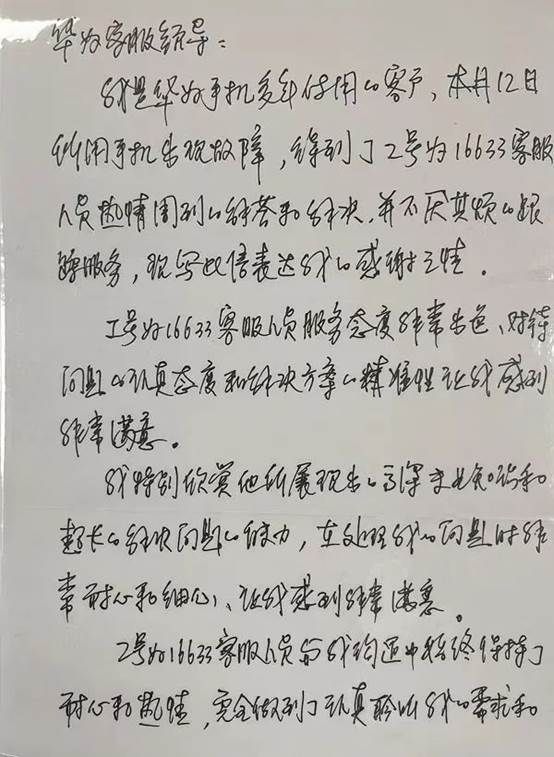 华为客服领导：
我是华为手机多年使用的客户，本月12日
所用手机出现故障，得到了工号为16633客服
人员热情周到的解答和解决，并不厌其烦的跟
踪服务，现写此信表达我的感谢之情。
工号为16633客服人员服务态度非常出色、对待
问题的认真态度和解决方案的精准性让我感到
非常满意。
我特别欣赏他所展现出的高深专业知识和
超长的解决问题的能力，在处理我的问题时非
常耐心和细心、让我感到非常满意。
工号为16633客服人员与我沟通中始终保持了
耐心和热情，完全做到了认真聆听我的需求和